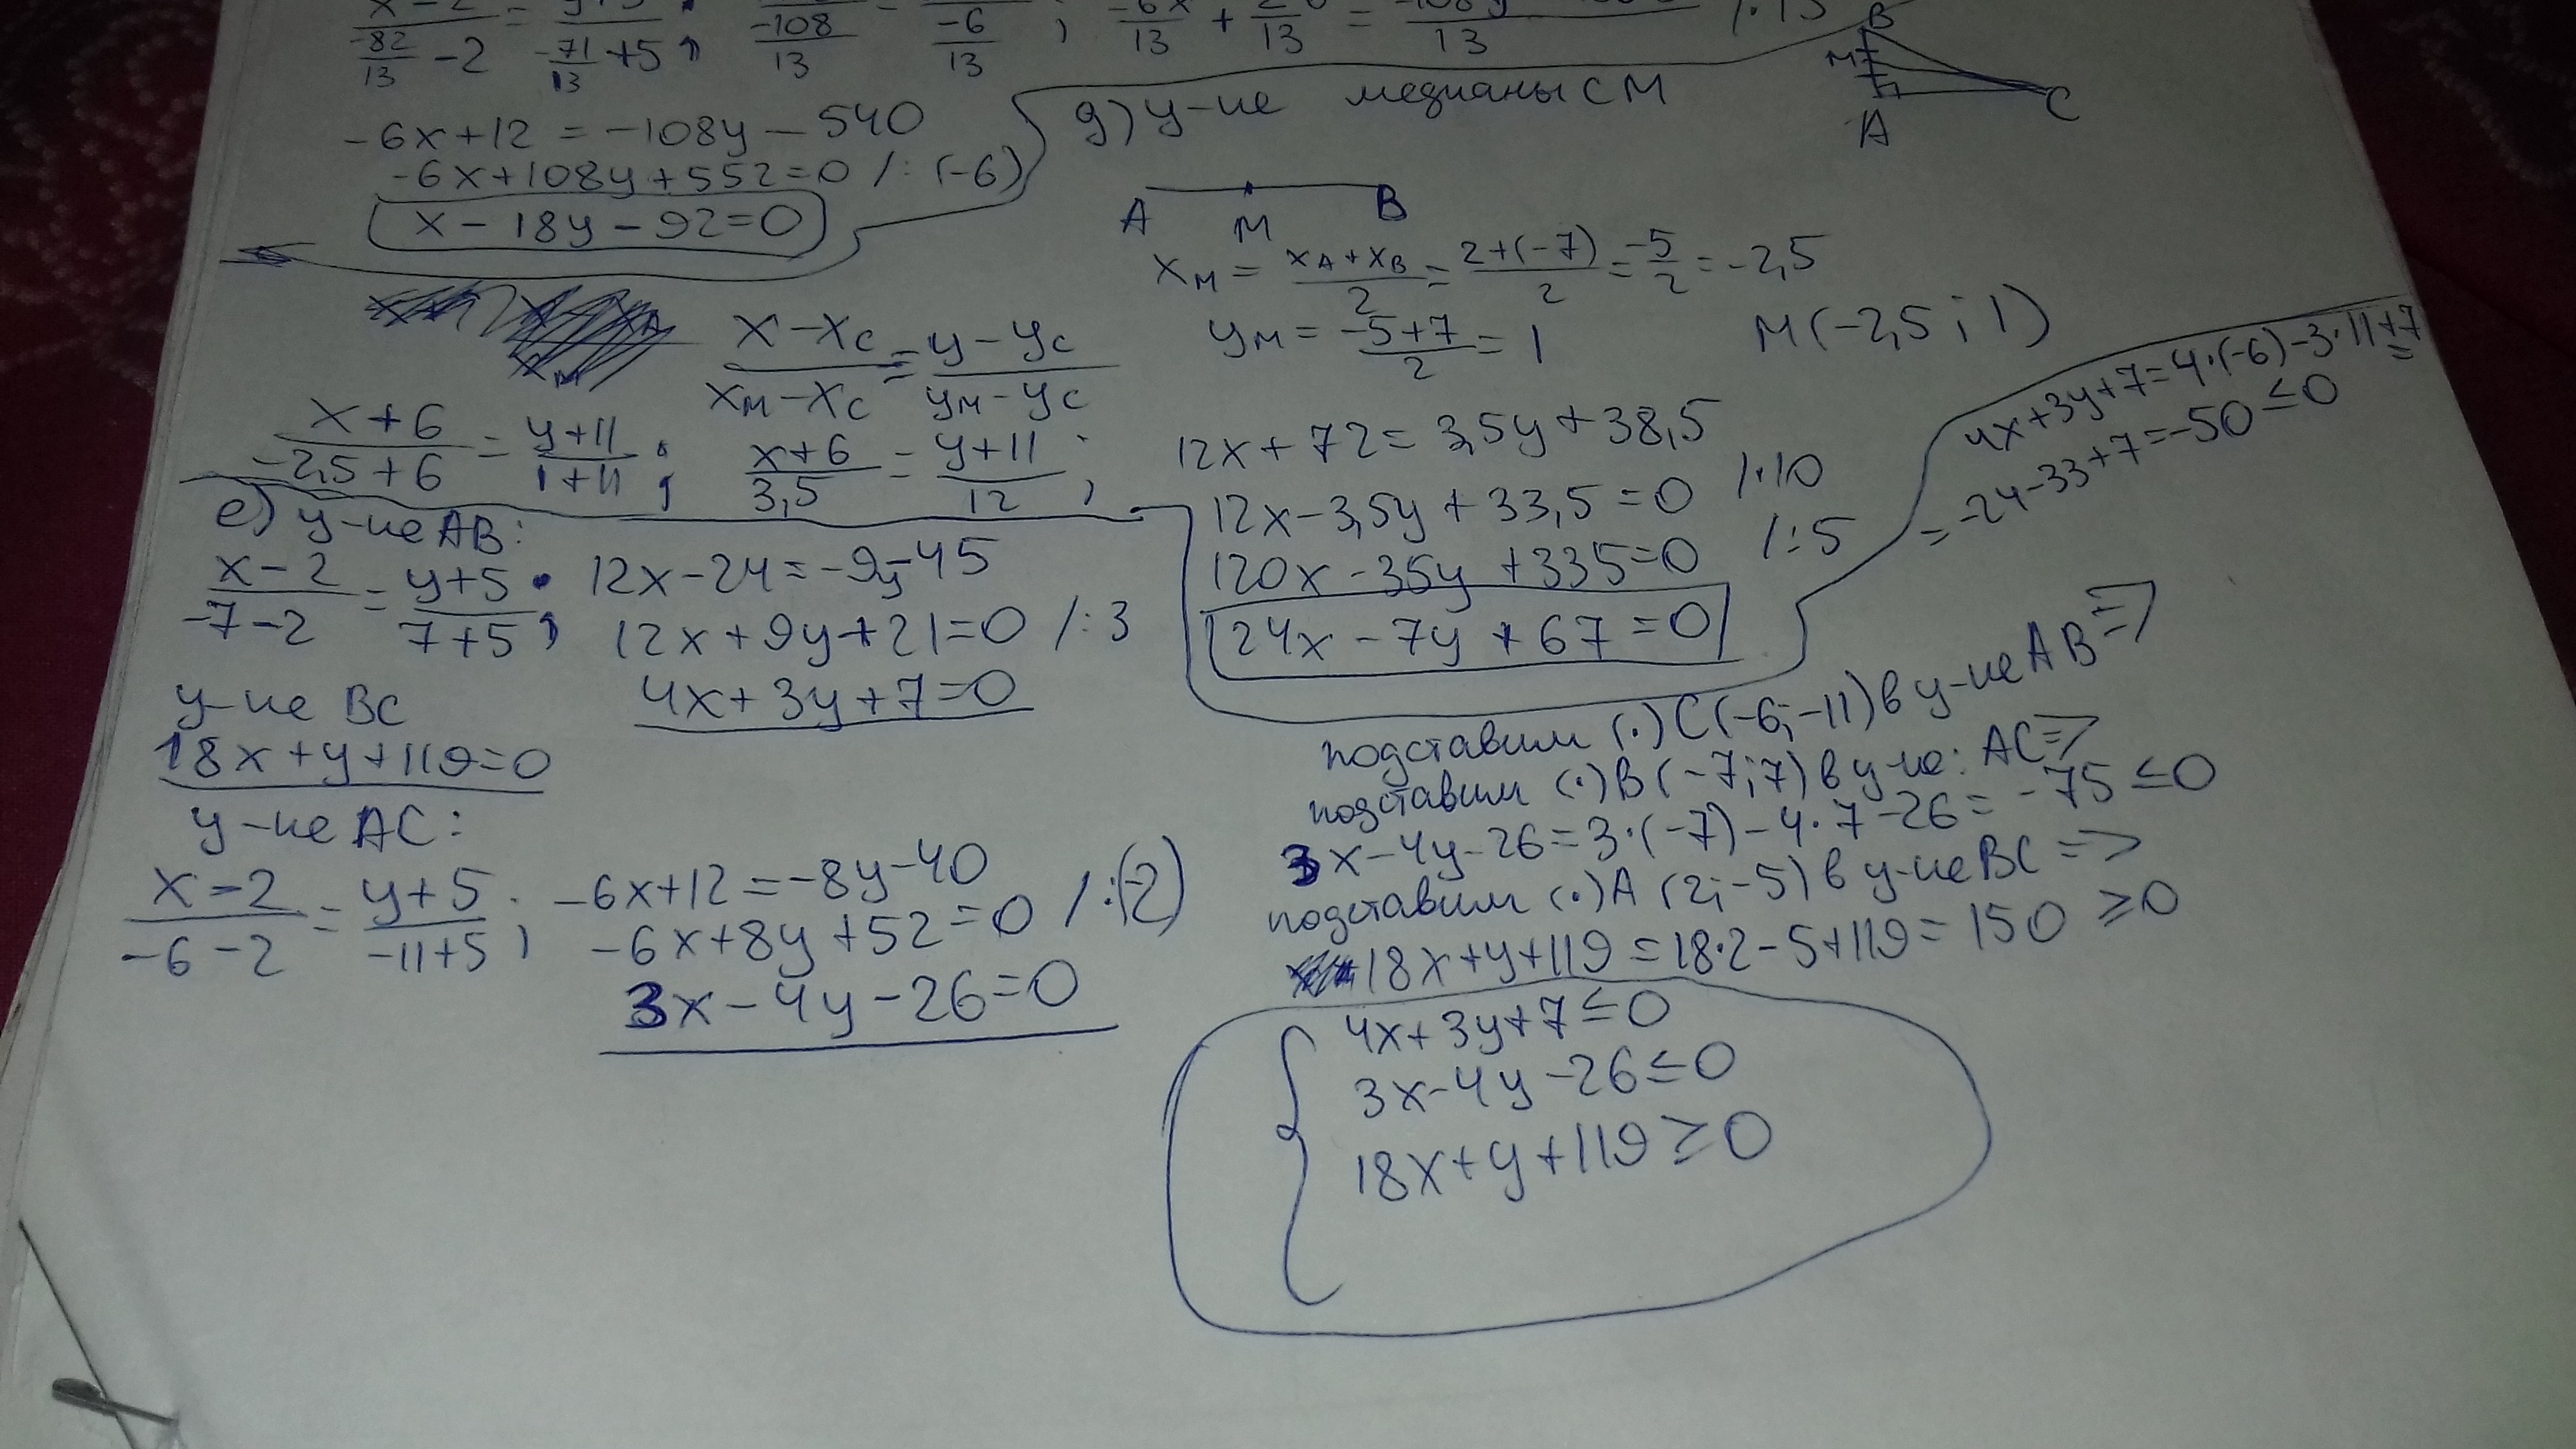 -82/13 - 2   -71/13 + 5 ;   -108/13   -6/13 ;   13 + 13 = 13
-6x+12 = -108y - 540
-6x+108y+552=0 /: (-6)
x - 18y - 92=0
д) у-ие медианы СМ
B
M
A
C
A M B
xM = (xA+xB)/2 = (2+(-7))/2 = -5/2 = -2,5
yM = (-5+7)/2 = 1
M(-2,5; 1)
(x-xC)/(xM-xC) = (y-yC)/(yM-yC)
(x+6)/(-2,5+6) = (y+11)/(1+11) ; (x+6)/3,5 = (y+11)/12 ;
12x+72= 3,5y+38,5
12x-3,5y+33,5=0 /·10
120x-35y+335=0 /:5
24x-7y+67=0
е) у-ие AB:
(x-2)/(-7-2) = (y+5)/(7+5) ; 12x-24=-9y-45
12x+9y+21=0 /:3
4x+3y+7=0
у-ие BC
18x+y+119=0
у-ие AC:
(x-2)/(-6-2) = (y+5)/(-11+5) ; -6x+12=-8y-40
-6x+8y+52=0 /:(-2)
3x-4y-26=0
4x+3y+7=4·(-6)-3·11+7=
=-24-33+7=-50≤0
подставим (·)C(-6;-11) в у-ие AB=>
подставим (·)B(-7;7) в у-ие: AC=>
3x-4y-26=3·(-7)-4·7-26=-75≤0
подставим (·)A(2;-5) в у-ие BC=>
18x+y+119=18·2-5+119=150≥0
4x+3y+7≤0
3x-4y-26≤0
18x+y+119≥0